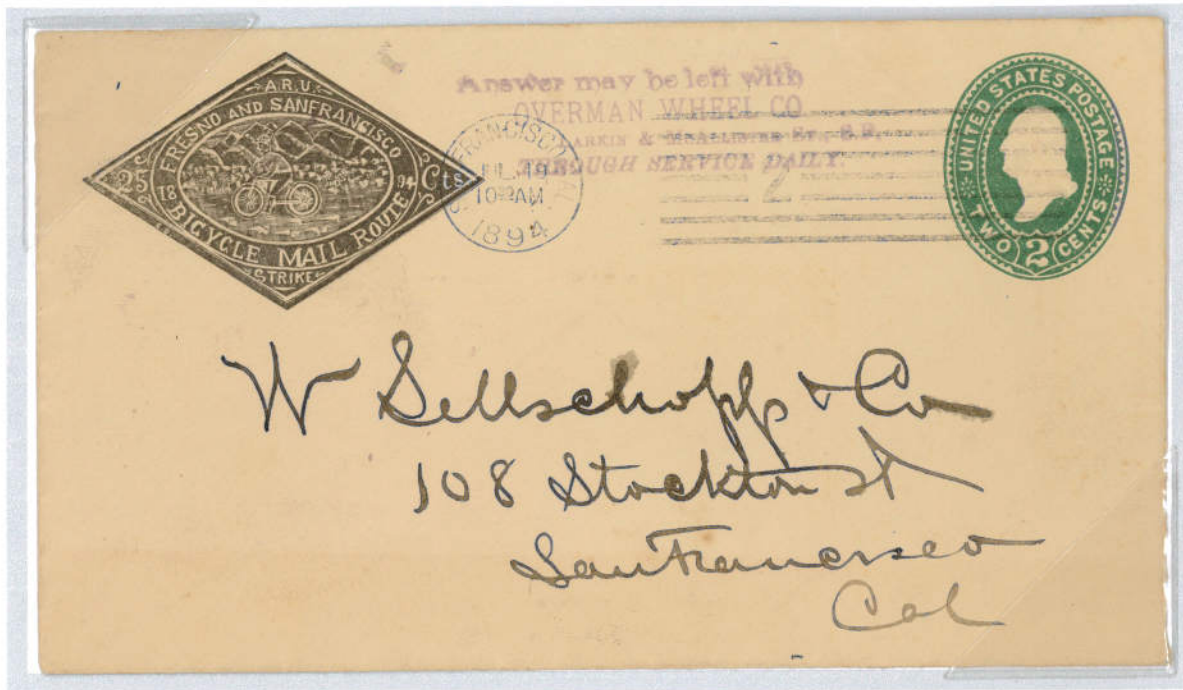 A.R.U.
FRESNO AND SANFRANCISCO
25 Cts
18 94
BICYCLE MAIL ROUTE
STRIKE
Answer may be left with
OVERMAN WHEEL CO
ARKIN & McALLISTER STS. S.F.
THROUGH SERVICE DAILY.
FRANCISCO, CAL.
JUL 19
10 AM
1894
2
UNITED STATES POSTAGE
TWO 2 CENTS
W Sellschopp & Co
108 Stockton St
San Francisco
Cal